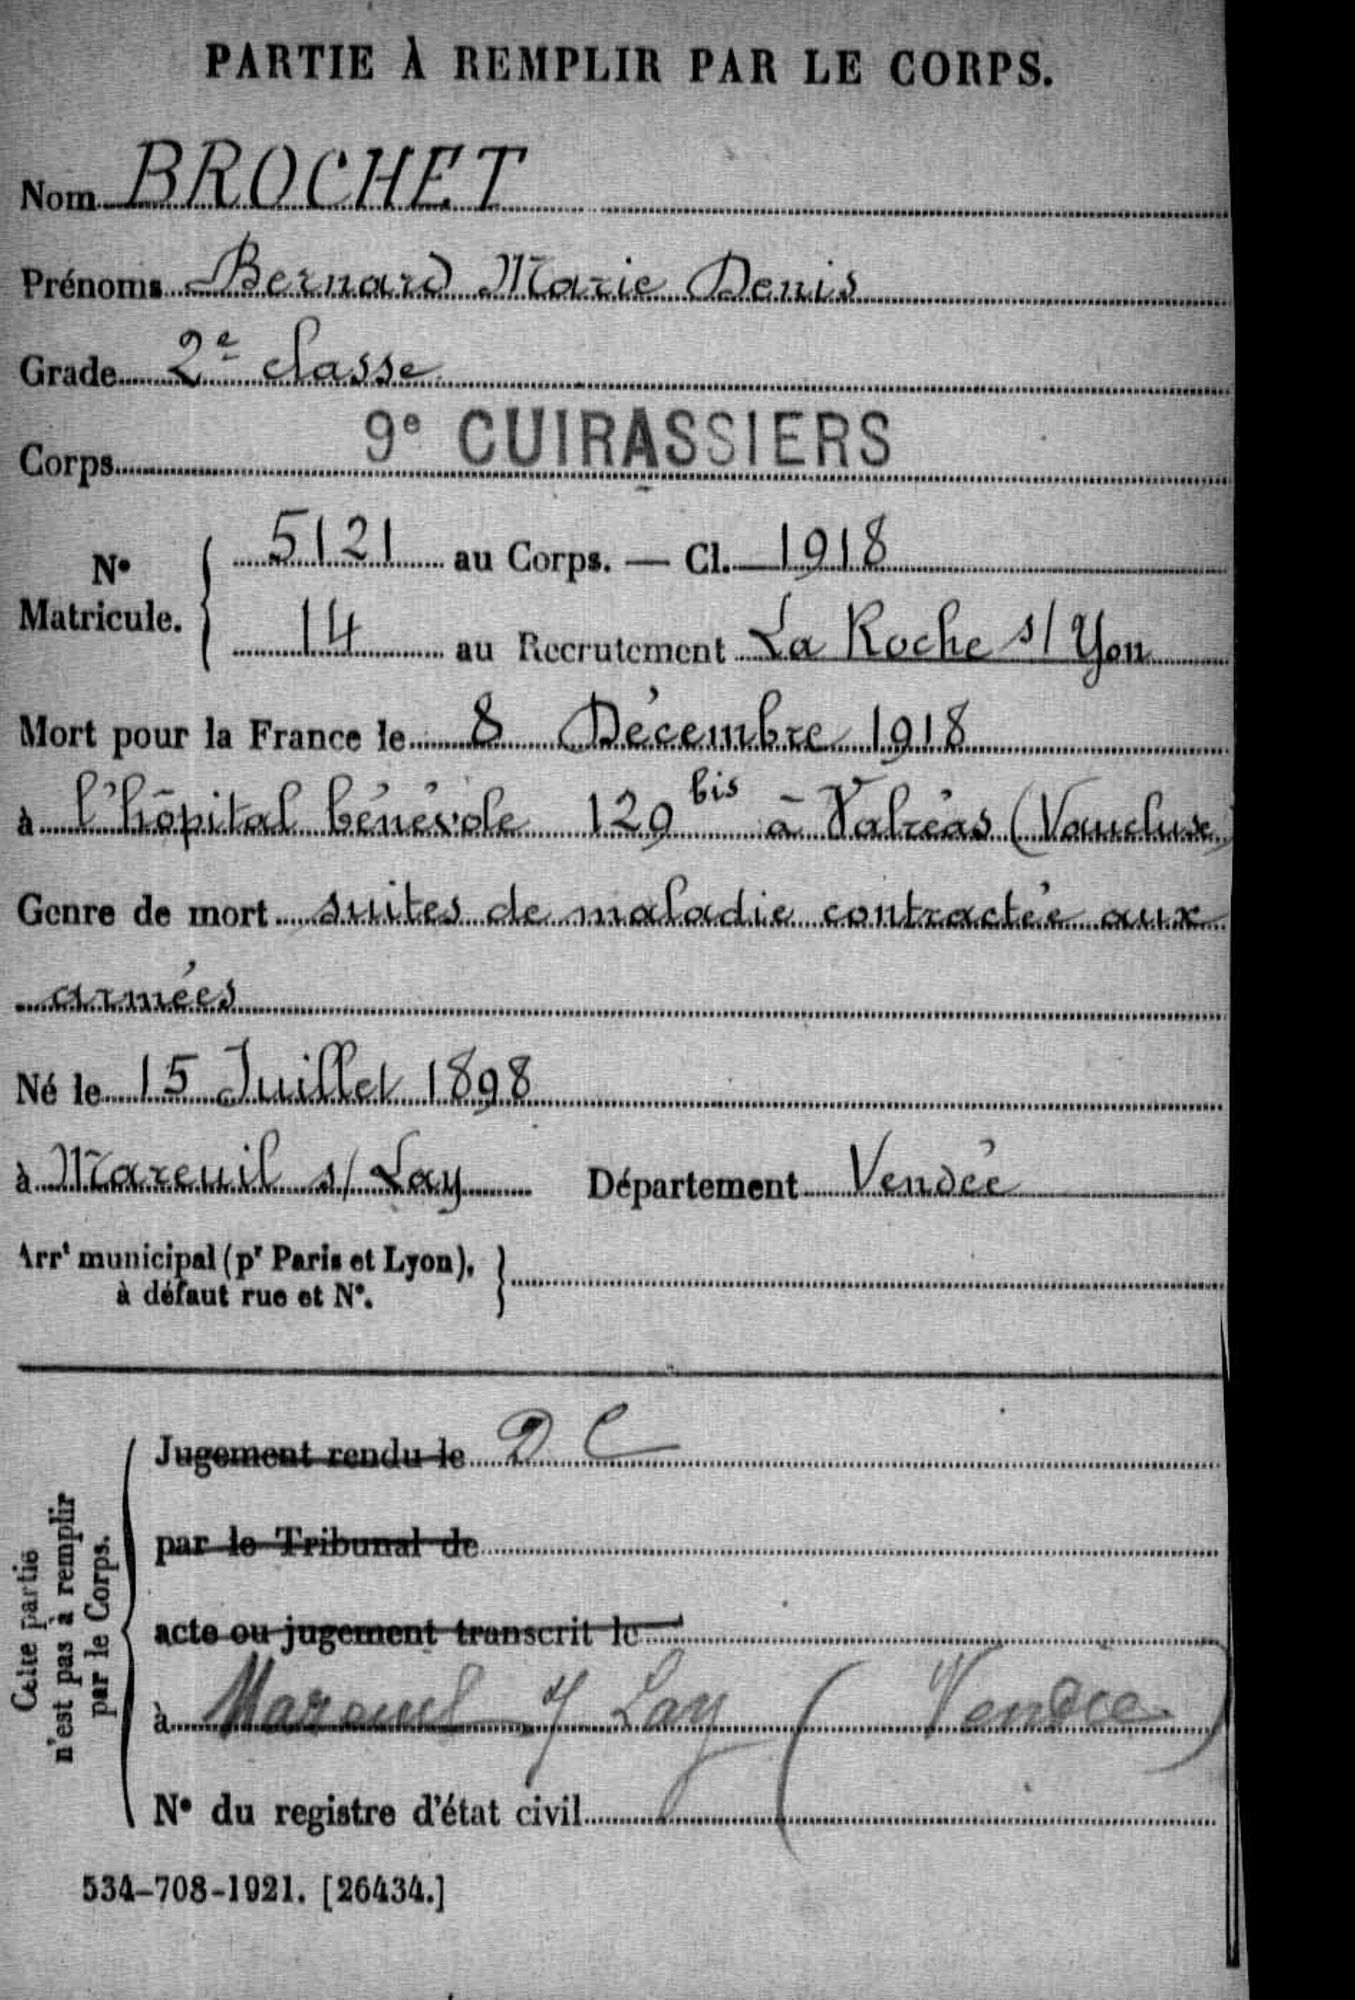 PARTIE À REMPLIR PAR LE CORPS.
Nom BROCHET
Prénoms Bernard Marie Denis
Grade 2e classe
Corps 9e CUIRASSIERS
No Matricule. { 5121 au Corps. — Cl. 1918
14 au Recrutement La Roche s/ Yon
Mort pour la France le 8 Décembre 1918
à l'hôpital bénévole 129 bis à Valréas (Vaucluse)
Genre de mort suites de maladie contractée aux
armées
Né le 15 Juillet 1898
à Mareuil s/ Lay Département Vendée
Arrt municipal (pr Paris et Lyon), à défaut rue et No. }
Cette partie n'est pas à remplir par le Corps.
Jugement rendu le D C
par le Tribunal de
acte ou jugement transcrit le
à Mareuil s/ Lay (Vendée)
No du registre d'état civil
534-708-1921. [26434.]